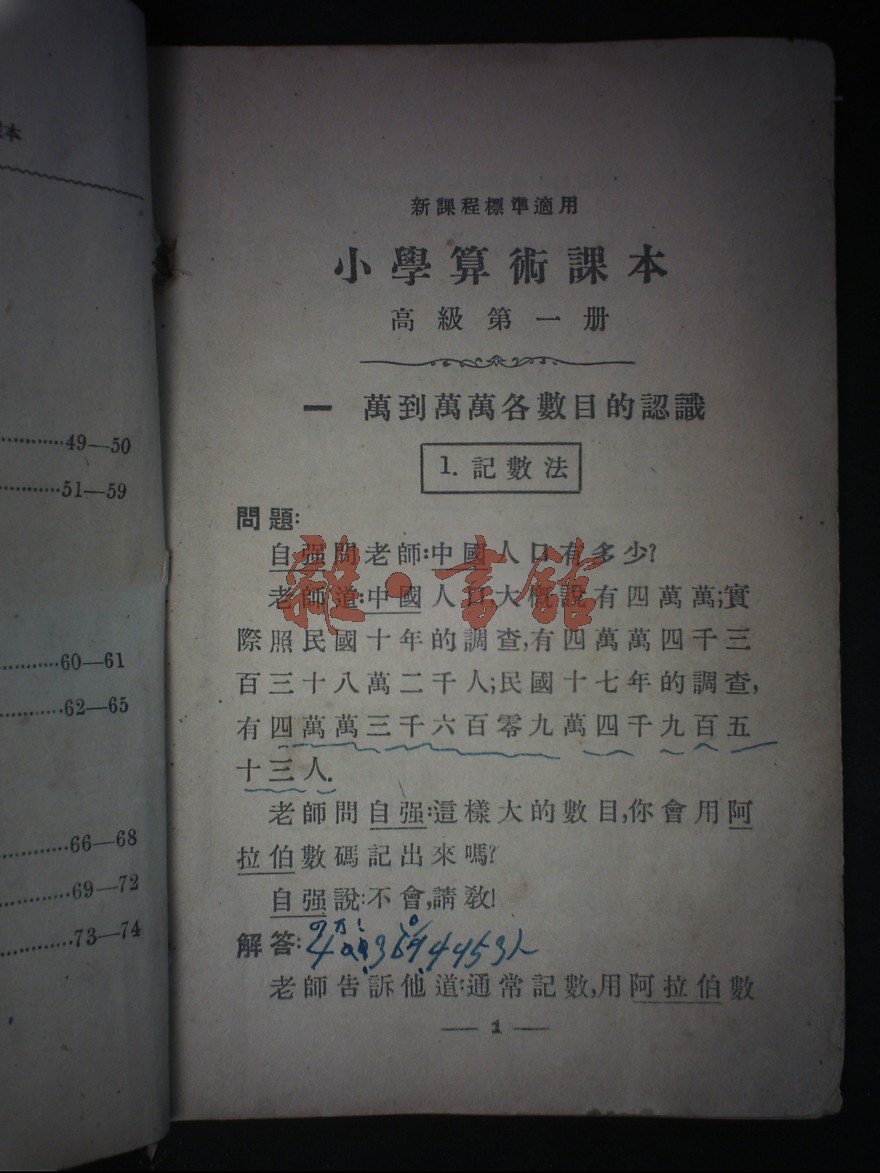 本
49—50
51—59
60—61
62—65
66—68
69—72
73—74
新課程標準適用
小學算術課本
高級第一册
一 萬到萬萬各數目的認識
1. 記數法
問題:
自强問老師:中國人口有多少?
老師道:中國人口大槪說有四萬萬;實
際照民國十年的調查,有四萬萬四千三
百三十八萬二千人;民國十七年的調查,
有四萬萬三千六百零九萬四千九百五
十三人.
老師問自强:這樣大的數目,你會用阿
拉伯數碼記出來嗎?
自强說:不會,請敎!
解答:
老師告訴他道:通常記數,用阿拉伯數
— 1 —
雜·書館